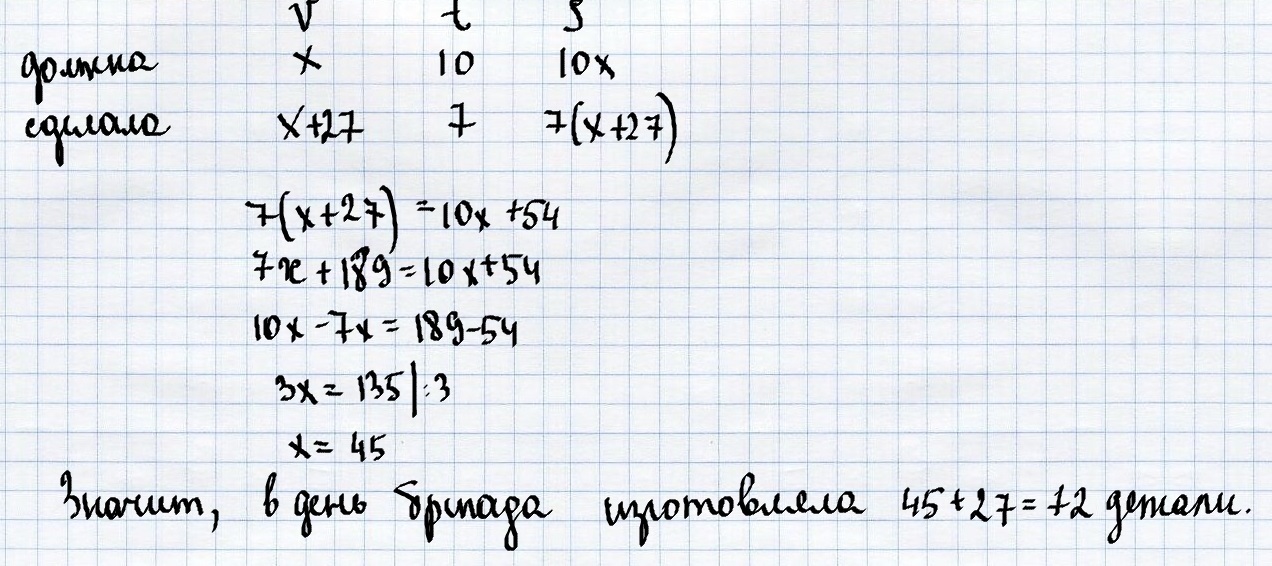 v t S
должна x 10 10x
сделала x+27 7 7(x+27)
7(x+27) =10x +54
7x+189=10x+54
10x-7x= 189-54
3x= 135|:3
x= 45
Значит, в день бригада изготовляла 45+27=72 детали.